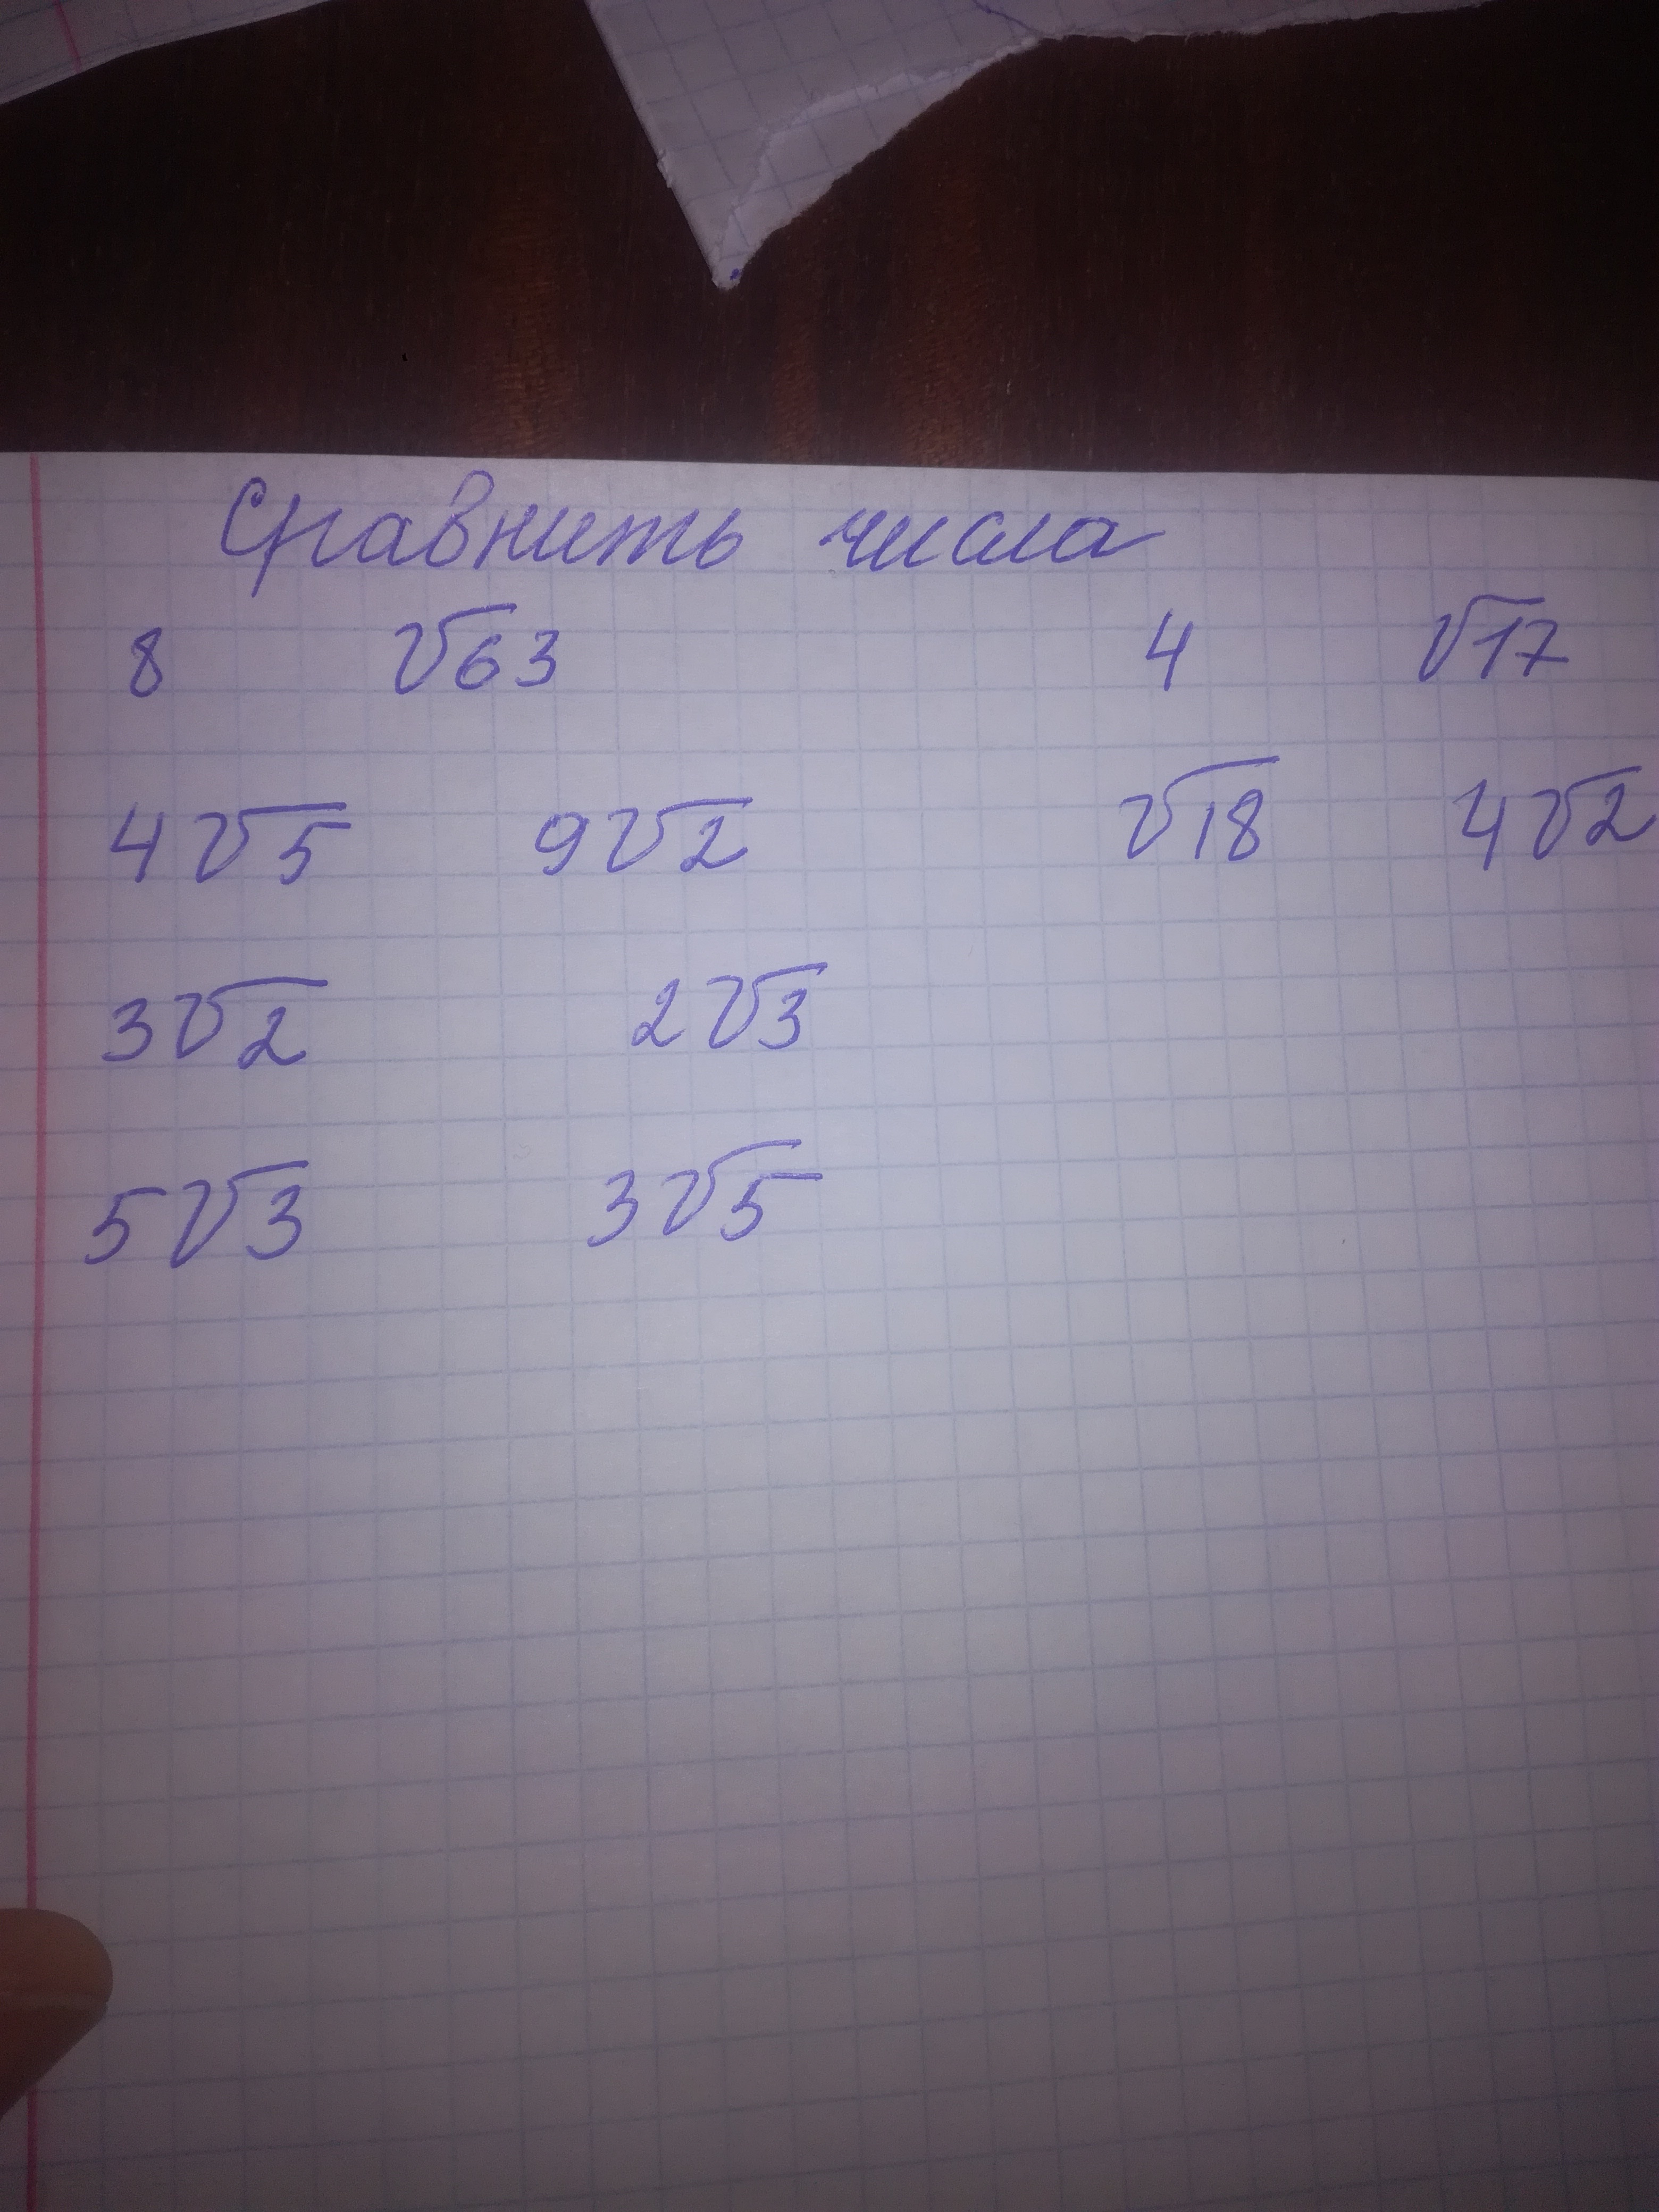 Сравнить числа
8 √63 4 √17
4√5 9√2 √18 4√2
3√2 2√3
5√3 3√5